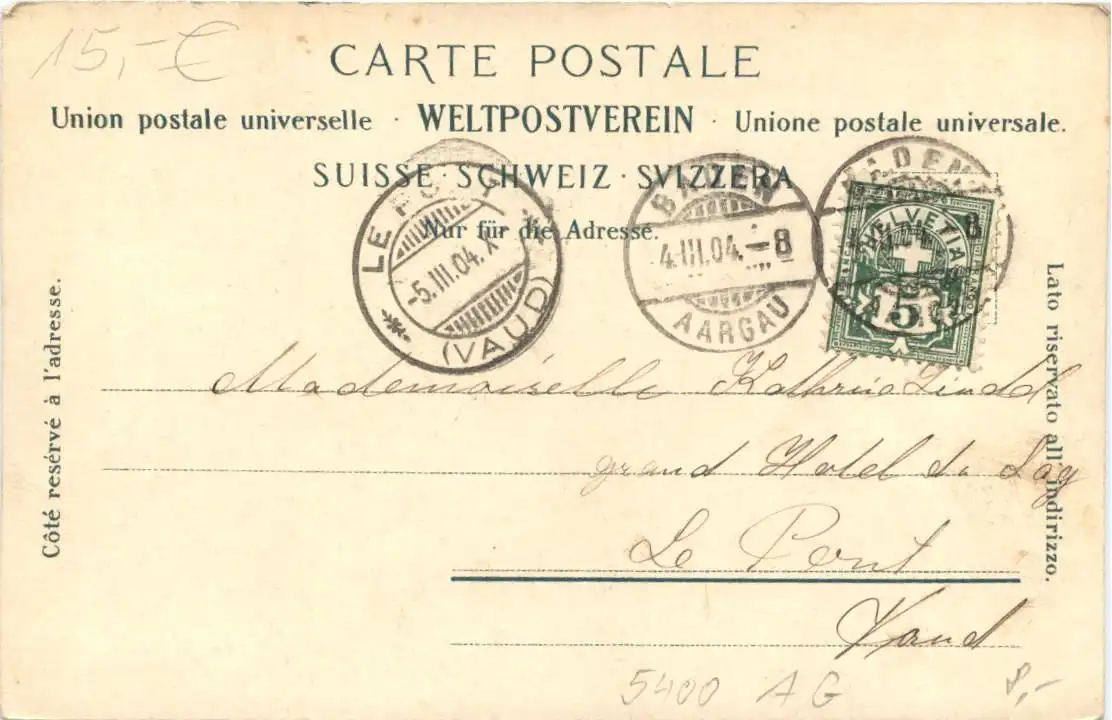 15,-€
CARTE POSTALE
Union postale universelle · WELTPOSTVEREIN · Unione postale universale.
SUISSE · SCHWEIZ · SVIZZERA
Nur für die Adresse.
LE PONT
-5.III.04.X
(VAUD)
BADEN
4.III.04.-8
AARGAU
BADEN
8
HELVETIA
5
Côté resérvé à l'adresse.
Lato riservato all indirizzo.
Mademoiselle
grand Hotel du
Le Pont
Vaud
5400 AG
8,-